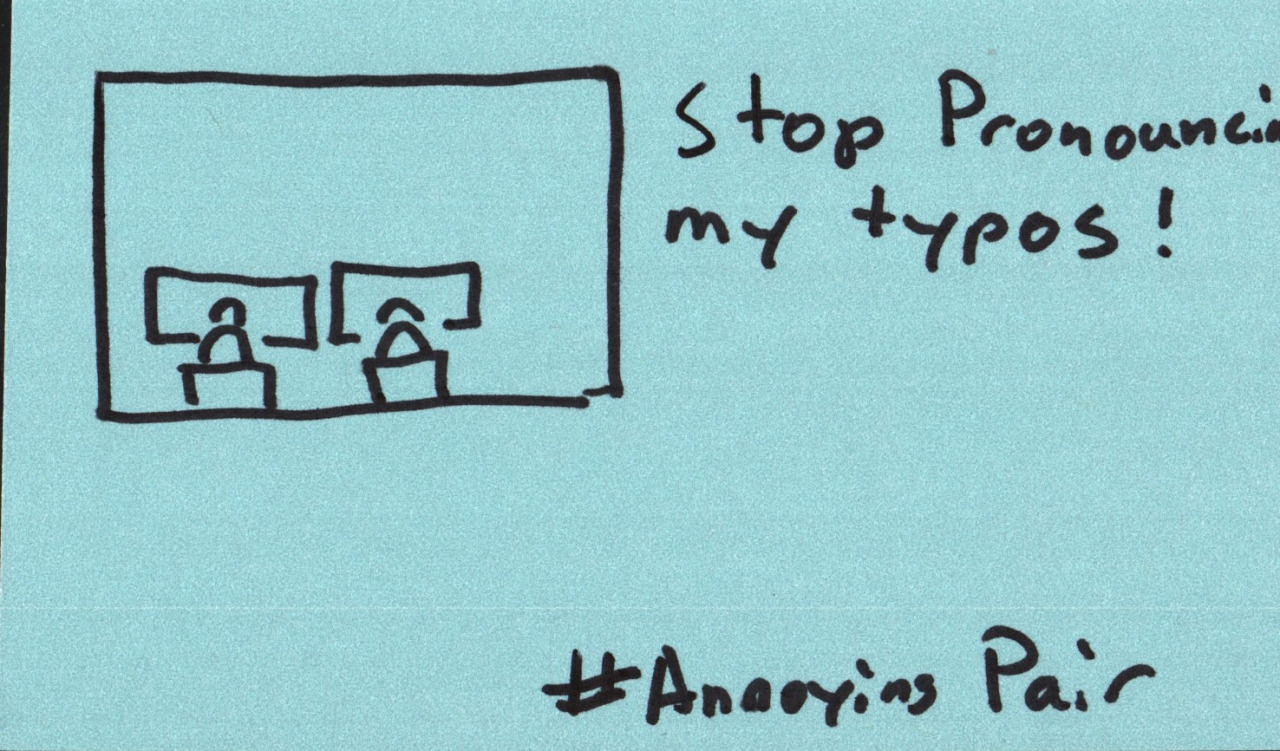 Stop Pronouncin
my typos!
#Annoying Pair